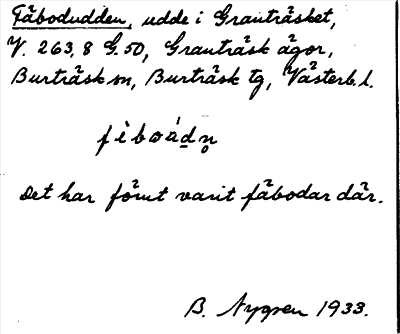 Fäbodudden, udde i Granträsket,
V. 263,8 G. 50, Granträsk ägor,
Burträsk sn, Burträsk tg, Västerb. l.
Det har förut varit fäbodar där.
B. Nygren 1933.